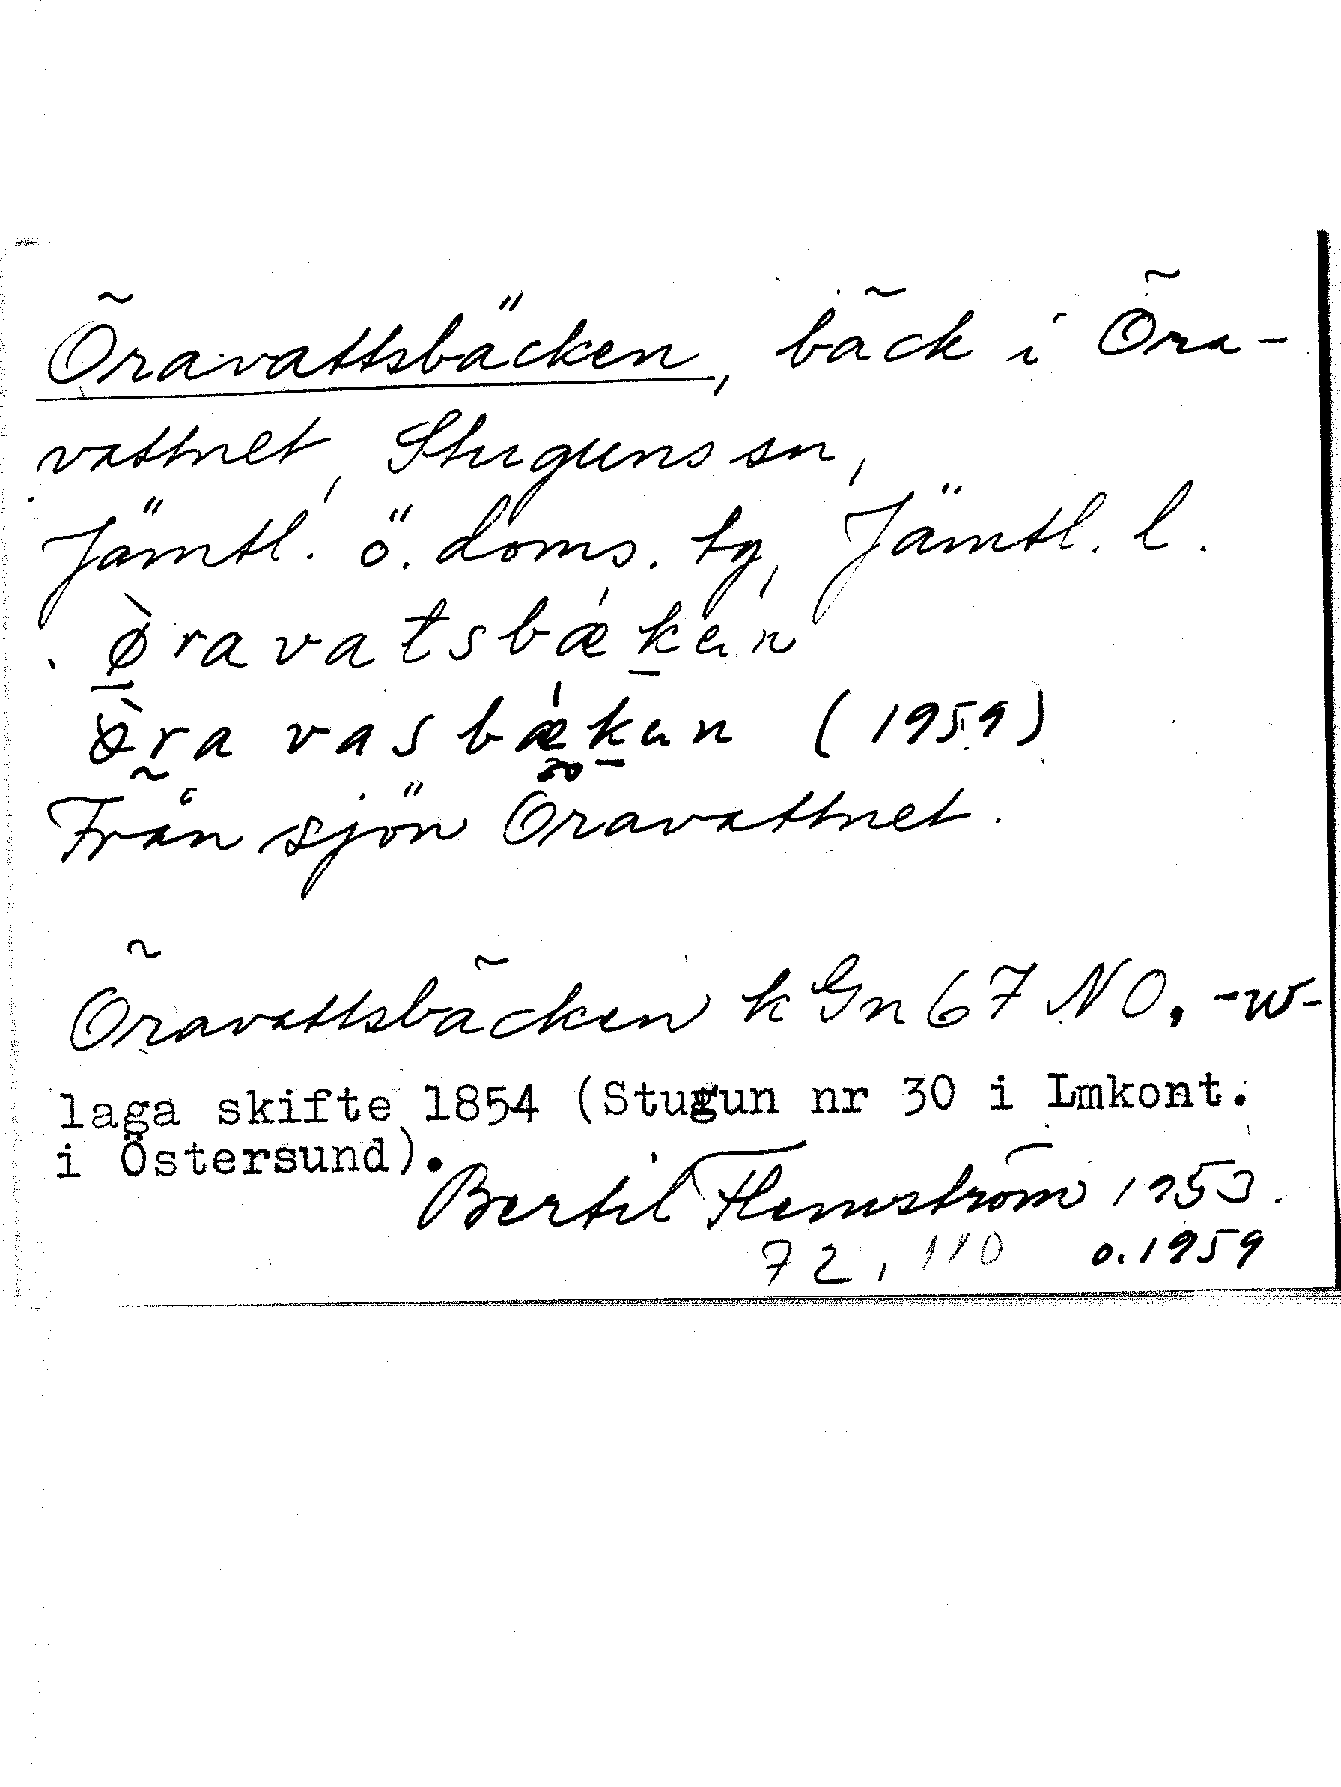 Öravattsbäcken, bäck i Öra-
vattnet, Stuguns sn,
Jämtl. ö. doms. tg, Jämtl. l.
ø̀ravatsbǽkan
ravasbǽkan (1959)
Från sjön Öravattnet.
Öravattsbäcken k Gn 67 NO. -w-
laga skifte 1854 (Stugun nr 30 i Lmkont.
i Östersund).
Bertil Flemström 1953.
72, 110 o. 1959